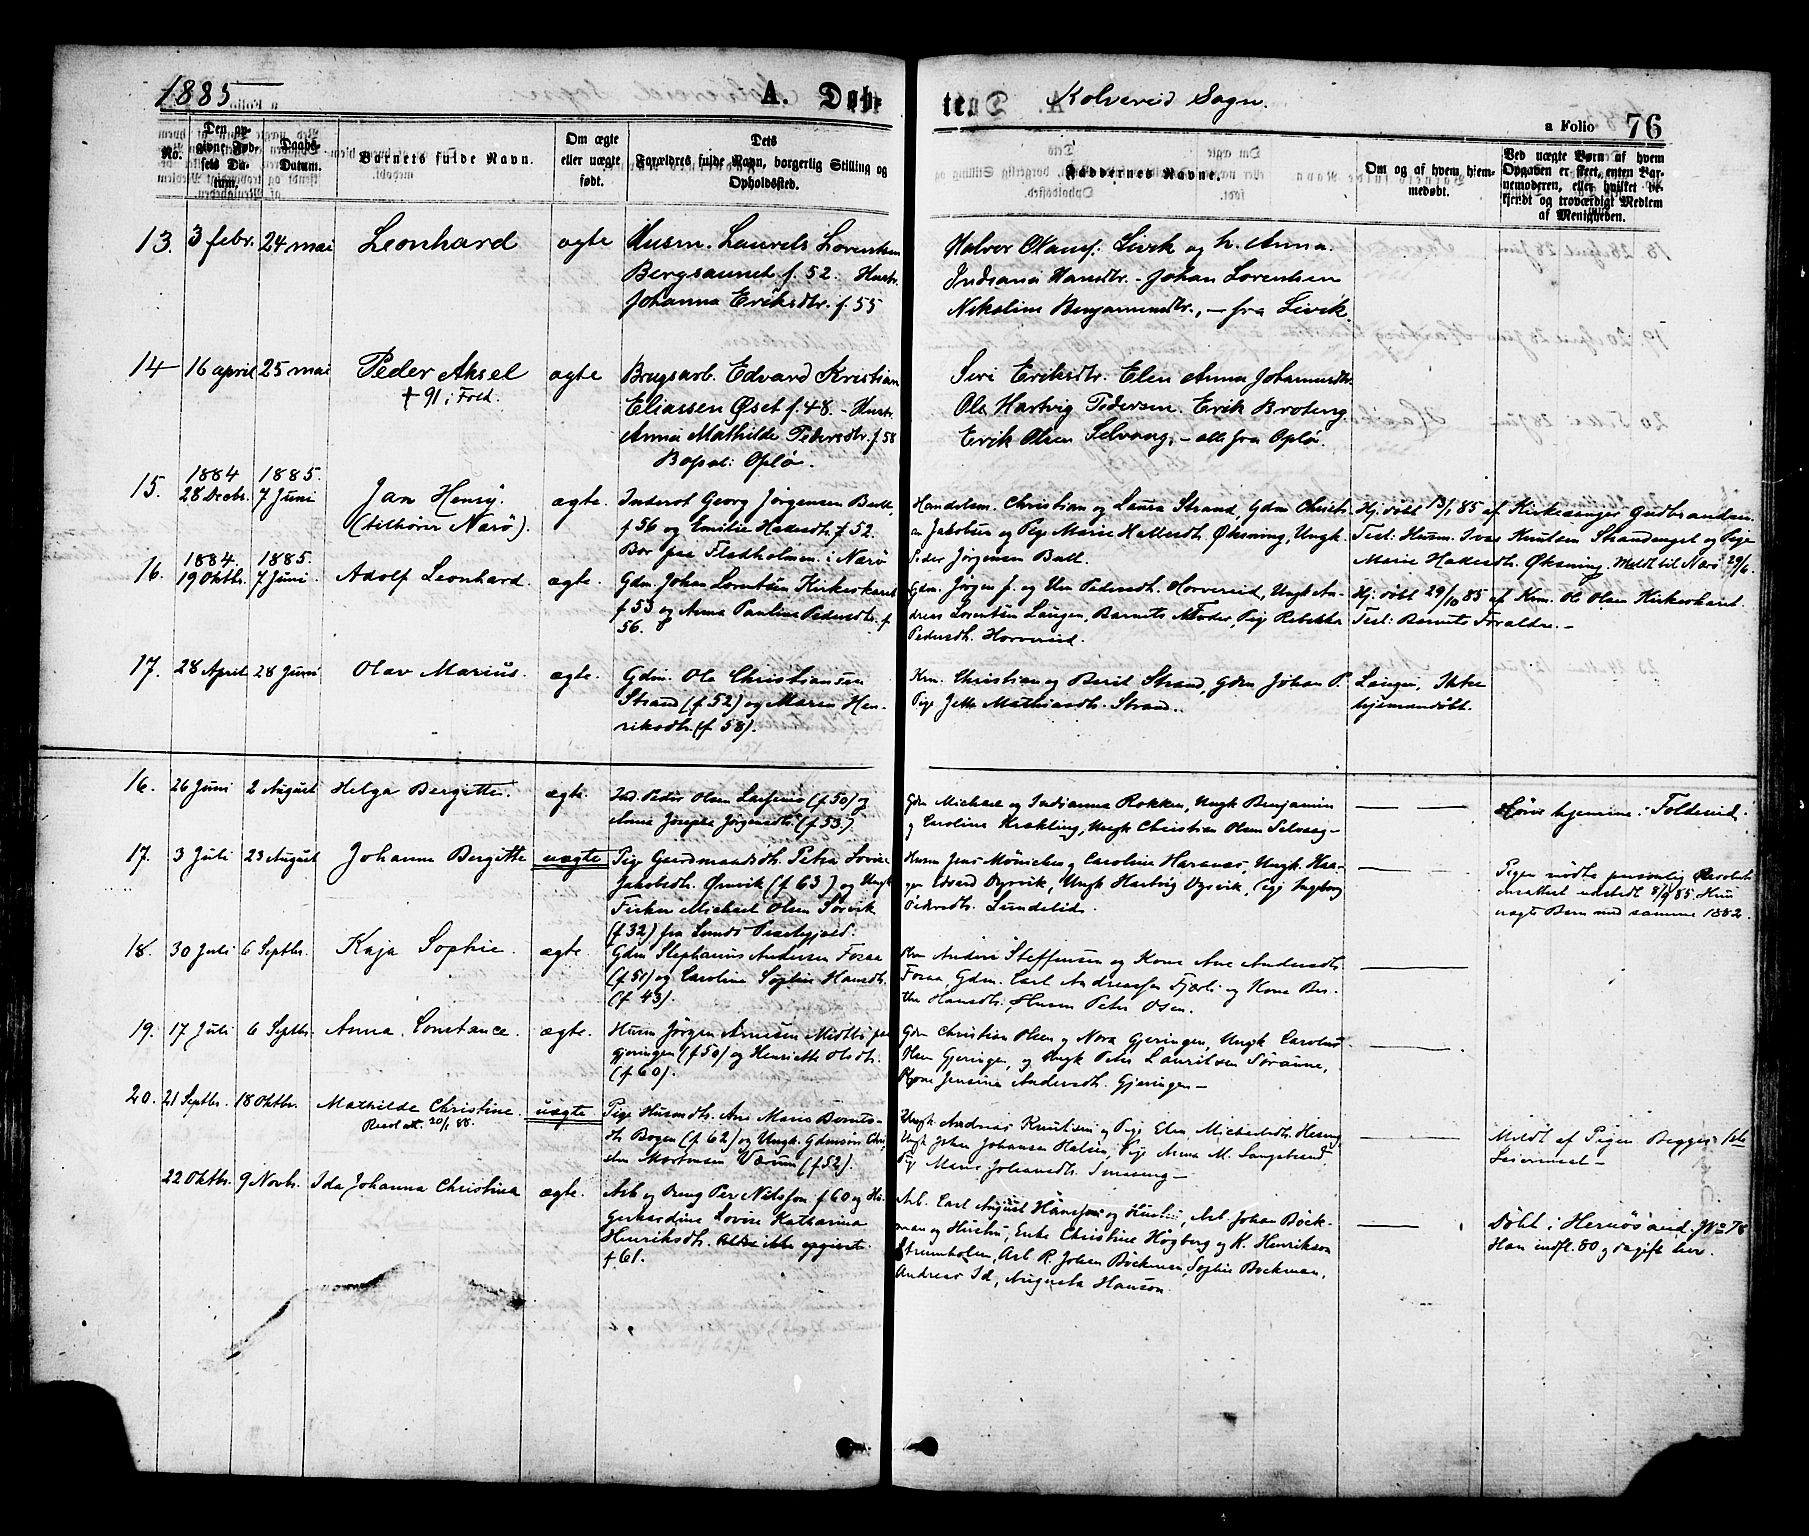 1885
A. Døb-
te.
Kolvereid Sogn.
a Folio 76
No.
Den op-
givne Fød-
sels Da-
tum.
Daabs-
Datum.
Barnets fulde Navn.
Om ægte
eller uægte
født.
Dets
Forældres fulde Navn, borgerlig Stilling og
Opholdssted.
Faddernes Navne.
Om og af hvem hjem-
medøbt.
Ved uægte Børn af hvem
Opgaven er skeet, enten Bar-
nemoderen, eller hvilket be-
kjendt og troværdigt Medlem
af Menigheden.
13. 3 febr. 24 mai Leonhard ægte Husm. Laurets Lorentsen
Bergsaunet f. 52. Hustr.
Johanna Eriksdtr. f. 55
Halvor Olausf. Livik og h. Anna.
Indiana Hansdtr. - Johan Lorentsen
Nikoline Benjaminsdtr., - fra Livik.
14 16 april 25 mai Peder Aksel ægte Brugsarb. Edvard Kristian
† 91 i Fold.
Eliassen Øset f. 48. - Hustr.
Anna Mathilde Pedersdtr. f 58
Bopæl: Oplø.
Siri Eriksdtr. Elen Anna Johannesdtr.
Ole Hartvig Pedersen. Erik Broteng.
Erik Olsen Selvaag, - alle fra Oplø.
15. 1884 28 Decbr. 1885. 7 Juni Jan Henry. ægte. Inderst Georg Jørgensen Bull
(tilhører Nærø).
f 56 og Emilie Hallesdtr. f 52.
Bor paa Fladholmen i Nærø
Handelsm. Christian og Laura Strand, Gdm Christi-
an Jakobsen og Pige Marie Hallesdtr. Øksning, Ungk.
Peder Jørgensen Bull.
Hj. døbt 13/1 85 af Kirkesanger Gudbrandsen.
Test: Husm. Ivar Knutsen Strandenget og Pige
Marie Hallesdtr. Øksning. Meldt til Nærø 29/6.
16. 1884. 19 Oktbr. 1885. 7 Juni. Adolf Leonhard. ægte. Gdm. Johan Lorentsen Kirkeskaret
f 53 og Anna Pauline Pedersdtr. f
56.
Gdm. Jørgen J. og Pedersdtr. Horvereid, Ungk. An-
dreas Lorentsen Langen, Barnets Moder, Pige Rebekka
Pedersdtr. Horvereid.
Hj. døbt 29/10 85 af Krm. Ole Olsen Kirkeskaret.
Test: Barnets Forældre. -
17. 28 April 28 Juni Olav Marius. ægte. Gdm. Ole Christiansen
Strand (f 52) og Maren Hen-
riksdtr. (f 58).
Krm. Christian og Berit Strand, Gdm Johan P.
Pige Jette Mathiasdtr. Strand.
Langen, Ikke
hjemmedøbt.
16. 26 Juni 2 August Helga Bergitte. ægte. Ind. Peder Olsen (f 50) og
Anna Josepha Jørgensdtr. (f 53.)
Gdm Michael og Indianna Rokken, Ungk Benjamin
og Caroline Krækling, Ungk Christian Olsen Selvaag -
hjemme i Foldereid.
17. 3 Juli 23 August Johanne Bergitte uægte Pige Gaardmandsdtr. Petra Lovise
Jakobsdtr. Ørnvik (f 63) og Ungk
Fisker Michael Olsen Sørvik
(f 32) fra Præstegjæld.
Husm Jens Mønichen og Caroline Haranæs, Ungk. Haa-
gen Edvard Dyrvik, Ungk Hartvig Dyrvik, Pige Ingeborg
Pedersdtr. Lundelid.
Pigen mødte personlig
udstedt 8/9 85. Hun
uægte Barn med samme 1882.
18. 30 Juli 6 Septbr. Kaja Sophie. ægte. Gdm Stephanus Andersen Fosaa
(f 51) og Caroline Sophie Hansdtr.
(f 43).
Andrs Steffensen og Kone Ane Andersdtr.
Fosaa, Gdm. Carl Andreassen Fjærli og Kone Ber-
the Hansdtr. Husm Peter Osen.
19. 17 Juli 6 Septbr. Anna Constance ægte. Husm Jørgen Arnesen Midtli paa
Gjeringen (f 50) og Henriette Olsdtr.
(f 60).
Gdm Christian Olsen og Nora Gjeringen, Ungk Carolus
Olsen Gjeringen, og Ungk Peter Lauritsen Sørünne,
Kone Jensine Andersdtr. Gjeringen -
20. 21 Septbr. 18 Oktbr. Mathilde Christine. uægte Pige Husmdtr. Ane Marie Bernts-
20/1 88.
dtr. Bogen (f 62) og Ungk. Gdmsøn Chri-
Mortensen Værum (f 52).
Ungk Andreas Knutsen og Pige Elen Michelsdtr.
Ungk Johan Johansen Halsen, Pige Anna M. Langstrand
Pige Marie Johansdtr. Smineng -
Meldt af Pigen Begges 1ste
Leiermaal -
22 Oktbr. 9 Novbr. Ida Johanna Christina ægte. Arb og Dreng Per Nilsson f 60 og H.
Gerhardine Lovise Katharina
Henriksdtr. Alder ikke opgivet.
f 61.
Arb. Carl August Hansson og Hustru, Arb Johan Böck-
man og Hustru, Enke Christine Högberg og K. Henrikson
Strømholm, Arb R. Johan Böckman, Sophie Bockman,
Andreas Id, Augusta Hanson.
Døbt i Hernösand. No 78
Han indfl. 80 og gift her.